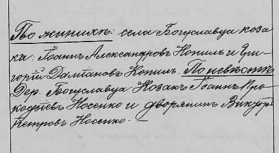 По женихѣ: села Богуславца коза
ки: Іоаннъ Александровъ Копилъ и Гри
горій Даміановъ Копилъ. По невѣстѣ
Дер. Богуславца Козакъ Іоаннъ Про
кофіевъ Носенко и дворянинъ Викторъ
Петровъ Носенко.